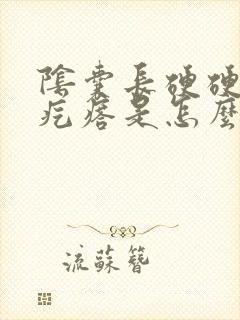 陰囊長硬硬
疙瘩是怎麼
流蘇簪